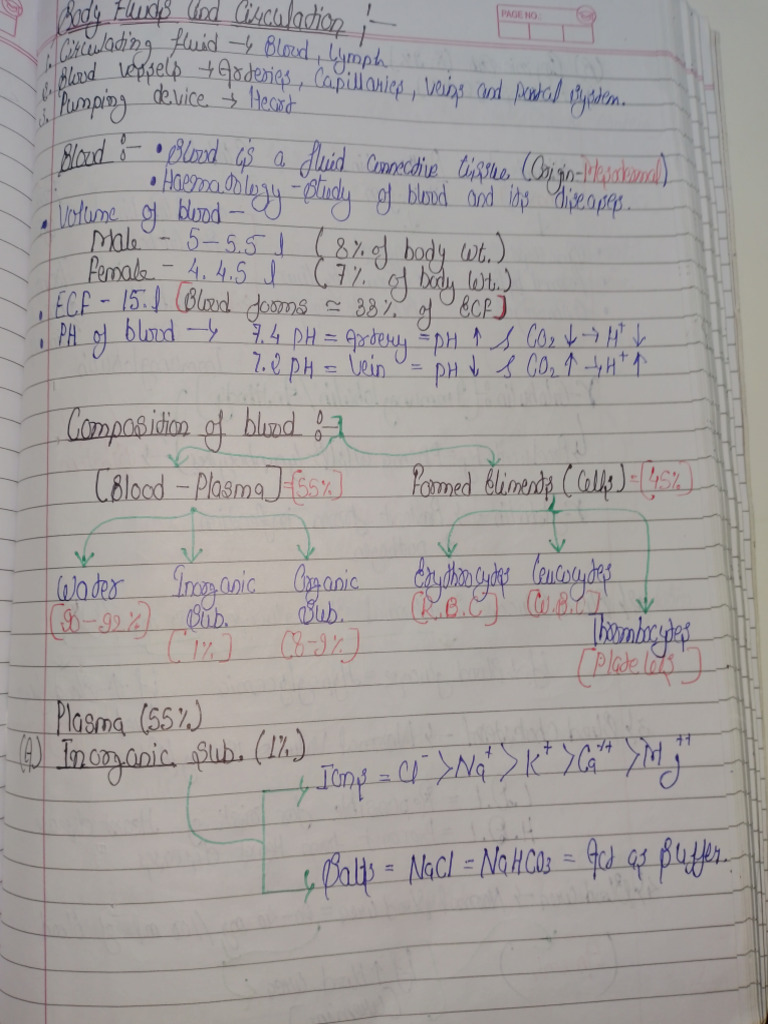 PAGE NO.:
Body Fluids and Circulation :-
1. Circulating fluid → Blood, Lymph
2. Blood vessels → Arteries, Capillaries, veins and portal system.
3. Pumping device → Heart
Blood :- • Blood is a fluid connective tissue (Origin-Mesodermal)
• Haematology - Study of blood and its diseases.
• Volume of blood -
Male - 5-5.5 l (8% of body wt.)
Female - 4.4.5 l (7% of body wt.)
• ECF - 15.l [Blood forms ≃ 38% of ECF]
• PH of blood → 7.4 pH = Artery = pH ↑ s CO2 ↓ → H+ ↓
7.2 pH = Vein = pH ↓ s CO2 ↑ → H+ ↑
Composition of blood :-
[Blood - Plasma] = [55%] Formed Eliments (Cells) = [45%]
Water Inorganic Organic Erythrocytes Leucocytes
[90-92%] Sub. Sub. (R.B.C) (W.B.C)
[1%] (8-9%) Thrombocytes
[Platelets]
Plasma (55%)
(A) Inorganic sub. (1%)
Ions = Cl- > Na+ > K+ > Ca++ > Mg++
Salts = NaCl = NaHCO3 = Act as Buffer.